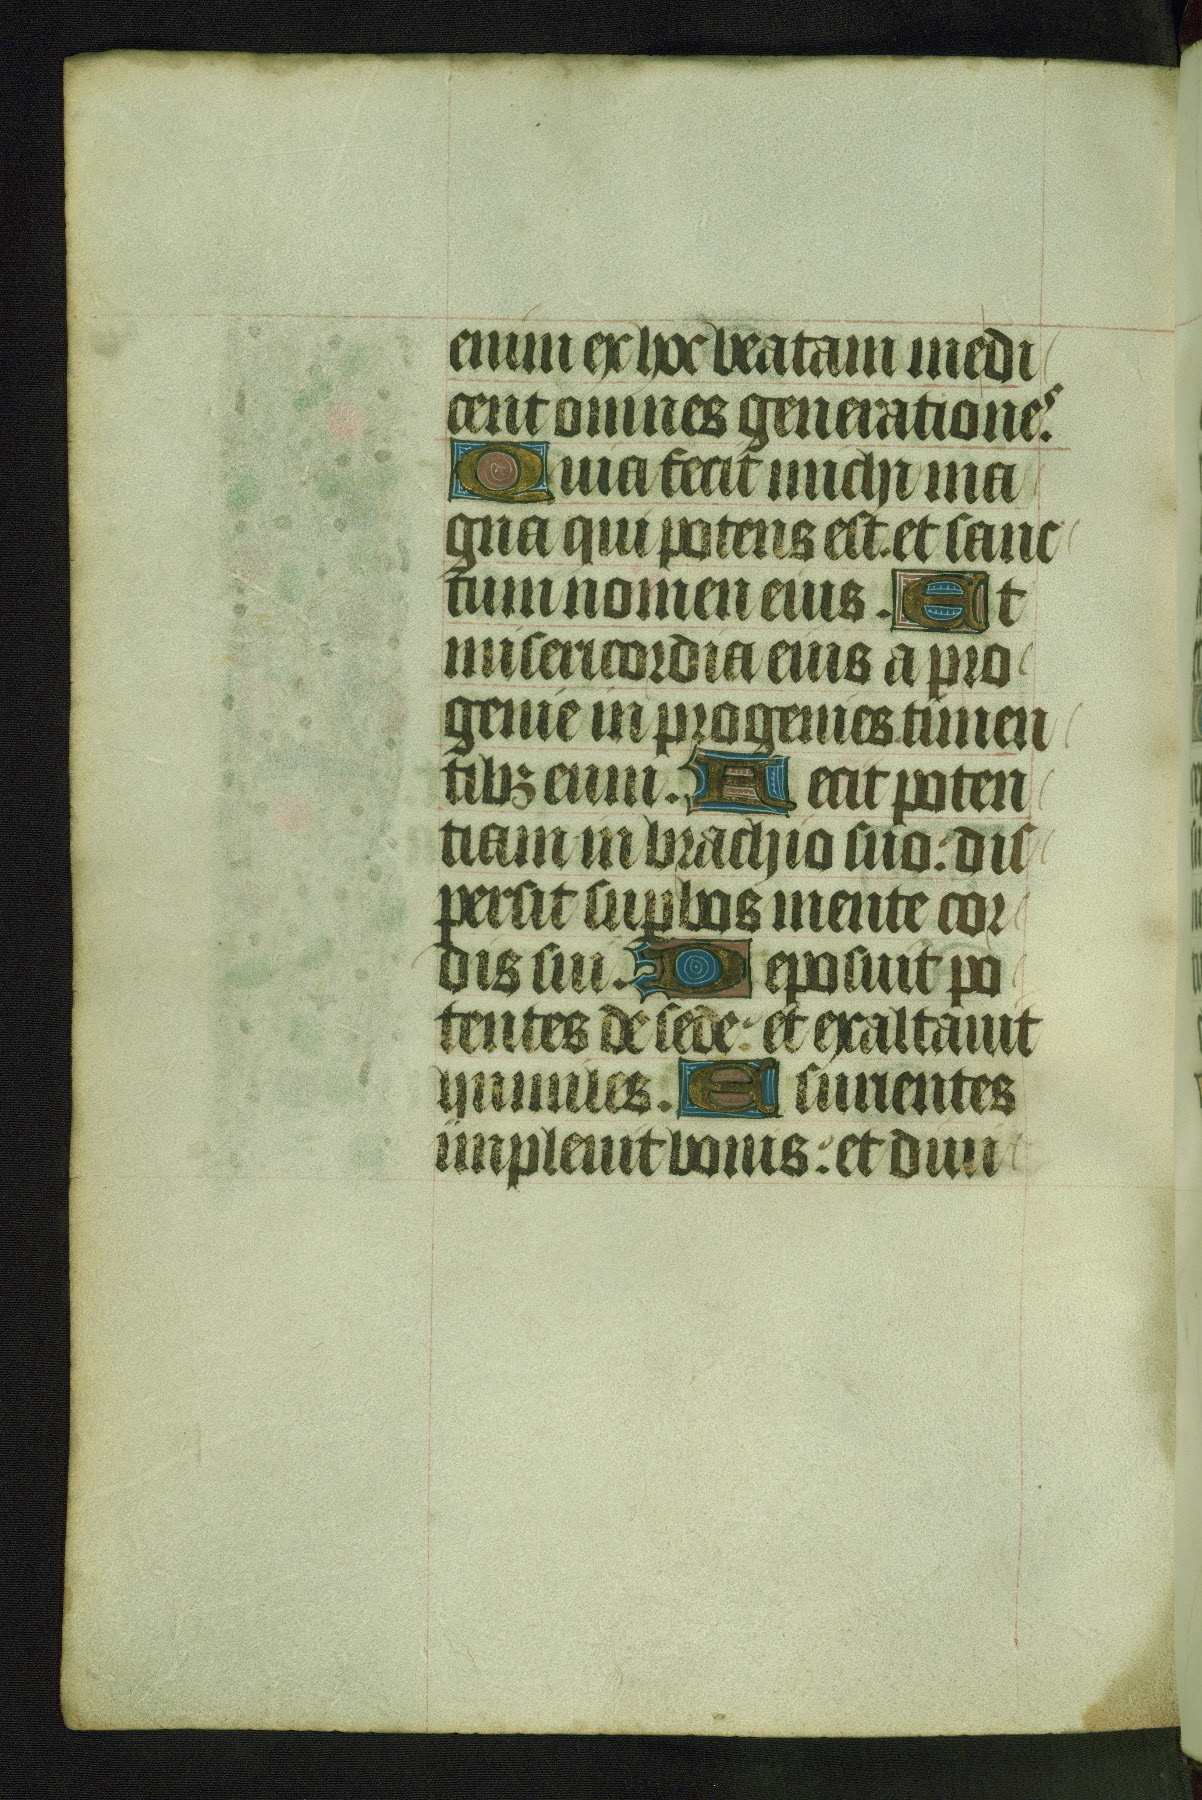 enim ex hoc beatam me di
cent omnes generationes.
Quia fecit michi ma
gna qui potens est. et sanc
tum nomen eius. Et
misericordia eius a pro
genie in progenies timen
tibꝫ eum. Fecit poten
tiam in brachio suo: dis
persit suꝑbos mente cor
dis sui. Deposuit po
tentes de sede: et exaltauit
humiles. Esurientes
impleuit bonis: et diui